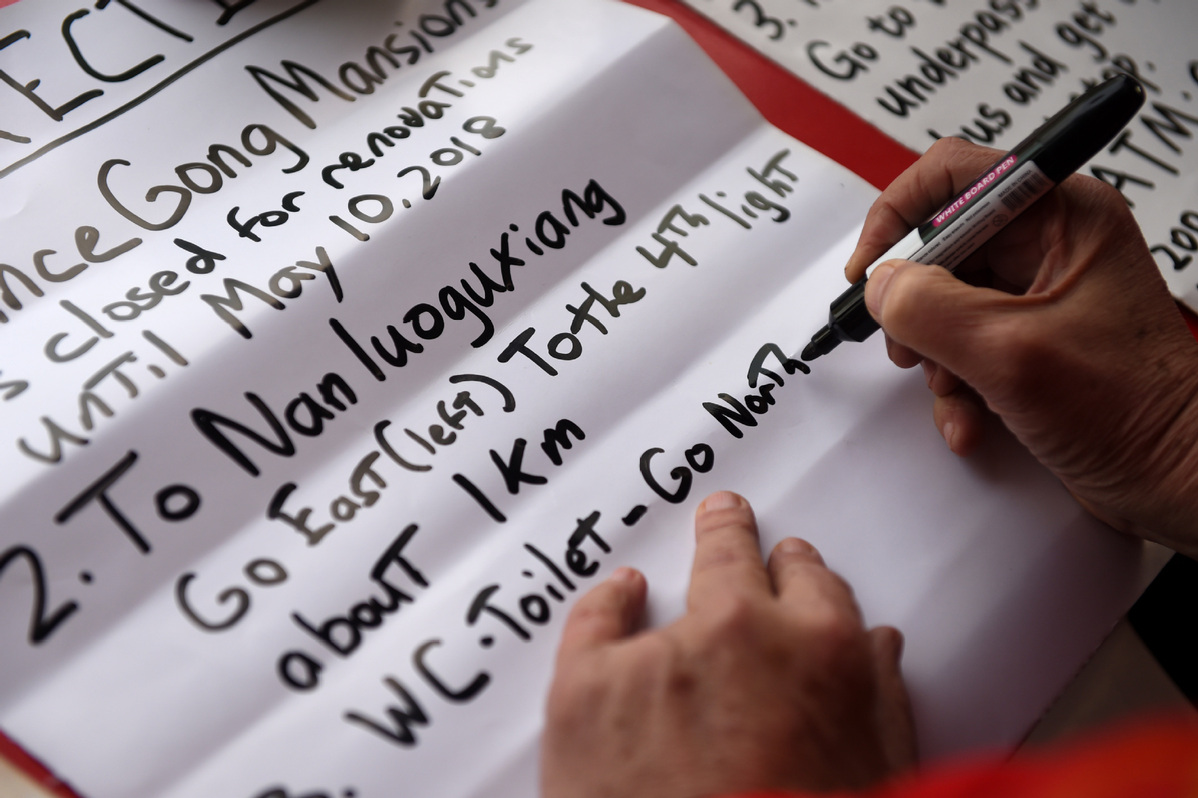 Gong Mansions
closed for renovations
until May 10.2018
2. To Nanluoguxiang
Go East (left) To the 4Th light
about 1km
WC. Toilet - Go North
WHITE BOARD PEN
3.
Go to
underpass
and get
ATM.